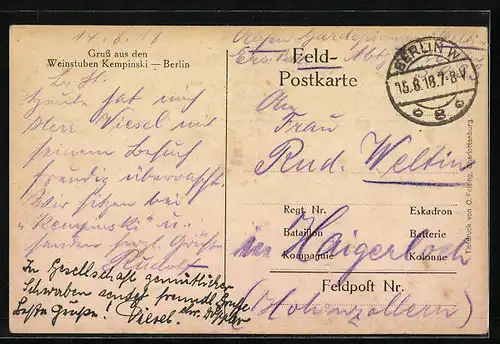 14.6.18
Gruß aus den
Weinstuben Kempinski — Berlin
Feld-
Postkarte
BERLIN W
15.6.18.7-8 V.
8
L. H.
Heute hat mich
Herr Viesel mit
seinem Besuch
freudig überrascht.
Wir sitzen bei
"Kempinski" u.
senden herzl. Grüße
Rudolf
In Gesellschaft gemütlicher
Schwaben sendet freundl. Grüße
Beste Grüße! Viesel.
An
Frau
Rud. Weltin
Regt. Nr. Eskadron
Bataillon Batterie
Kompagnie Kolonne
in Haigerloch
Feldpost Nr.
(Hohenzollern)
Tiefdruck von O. Felsing, Charlottenburg.